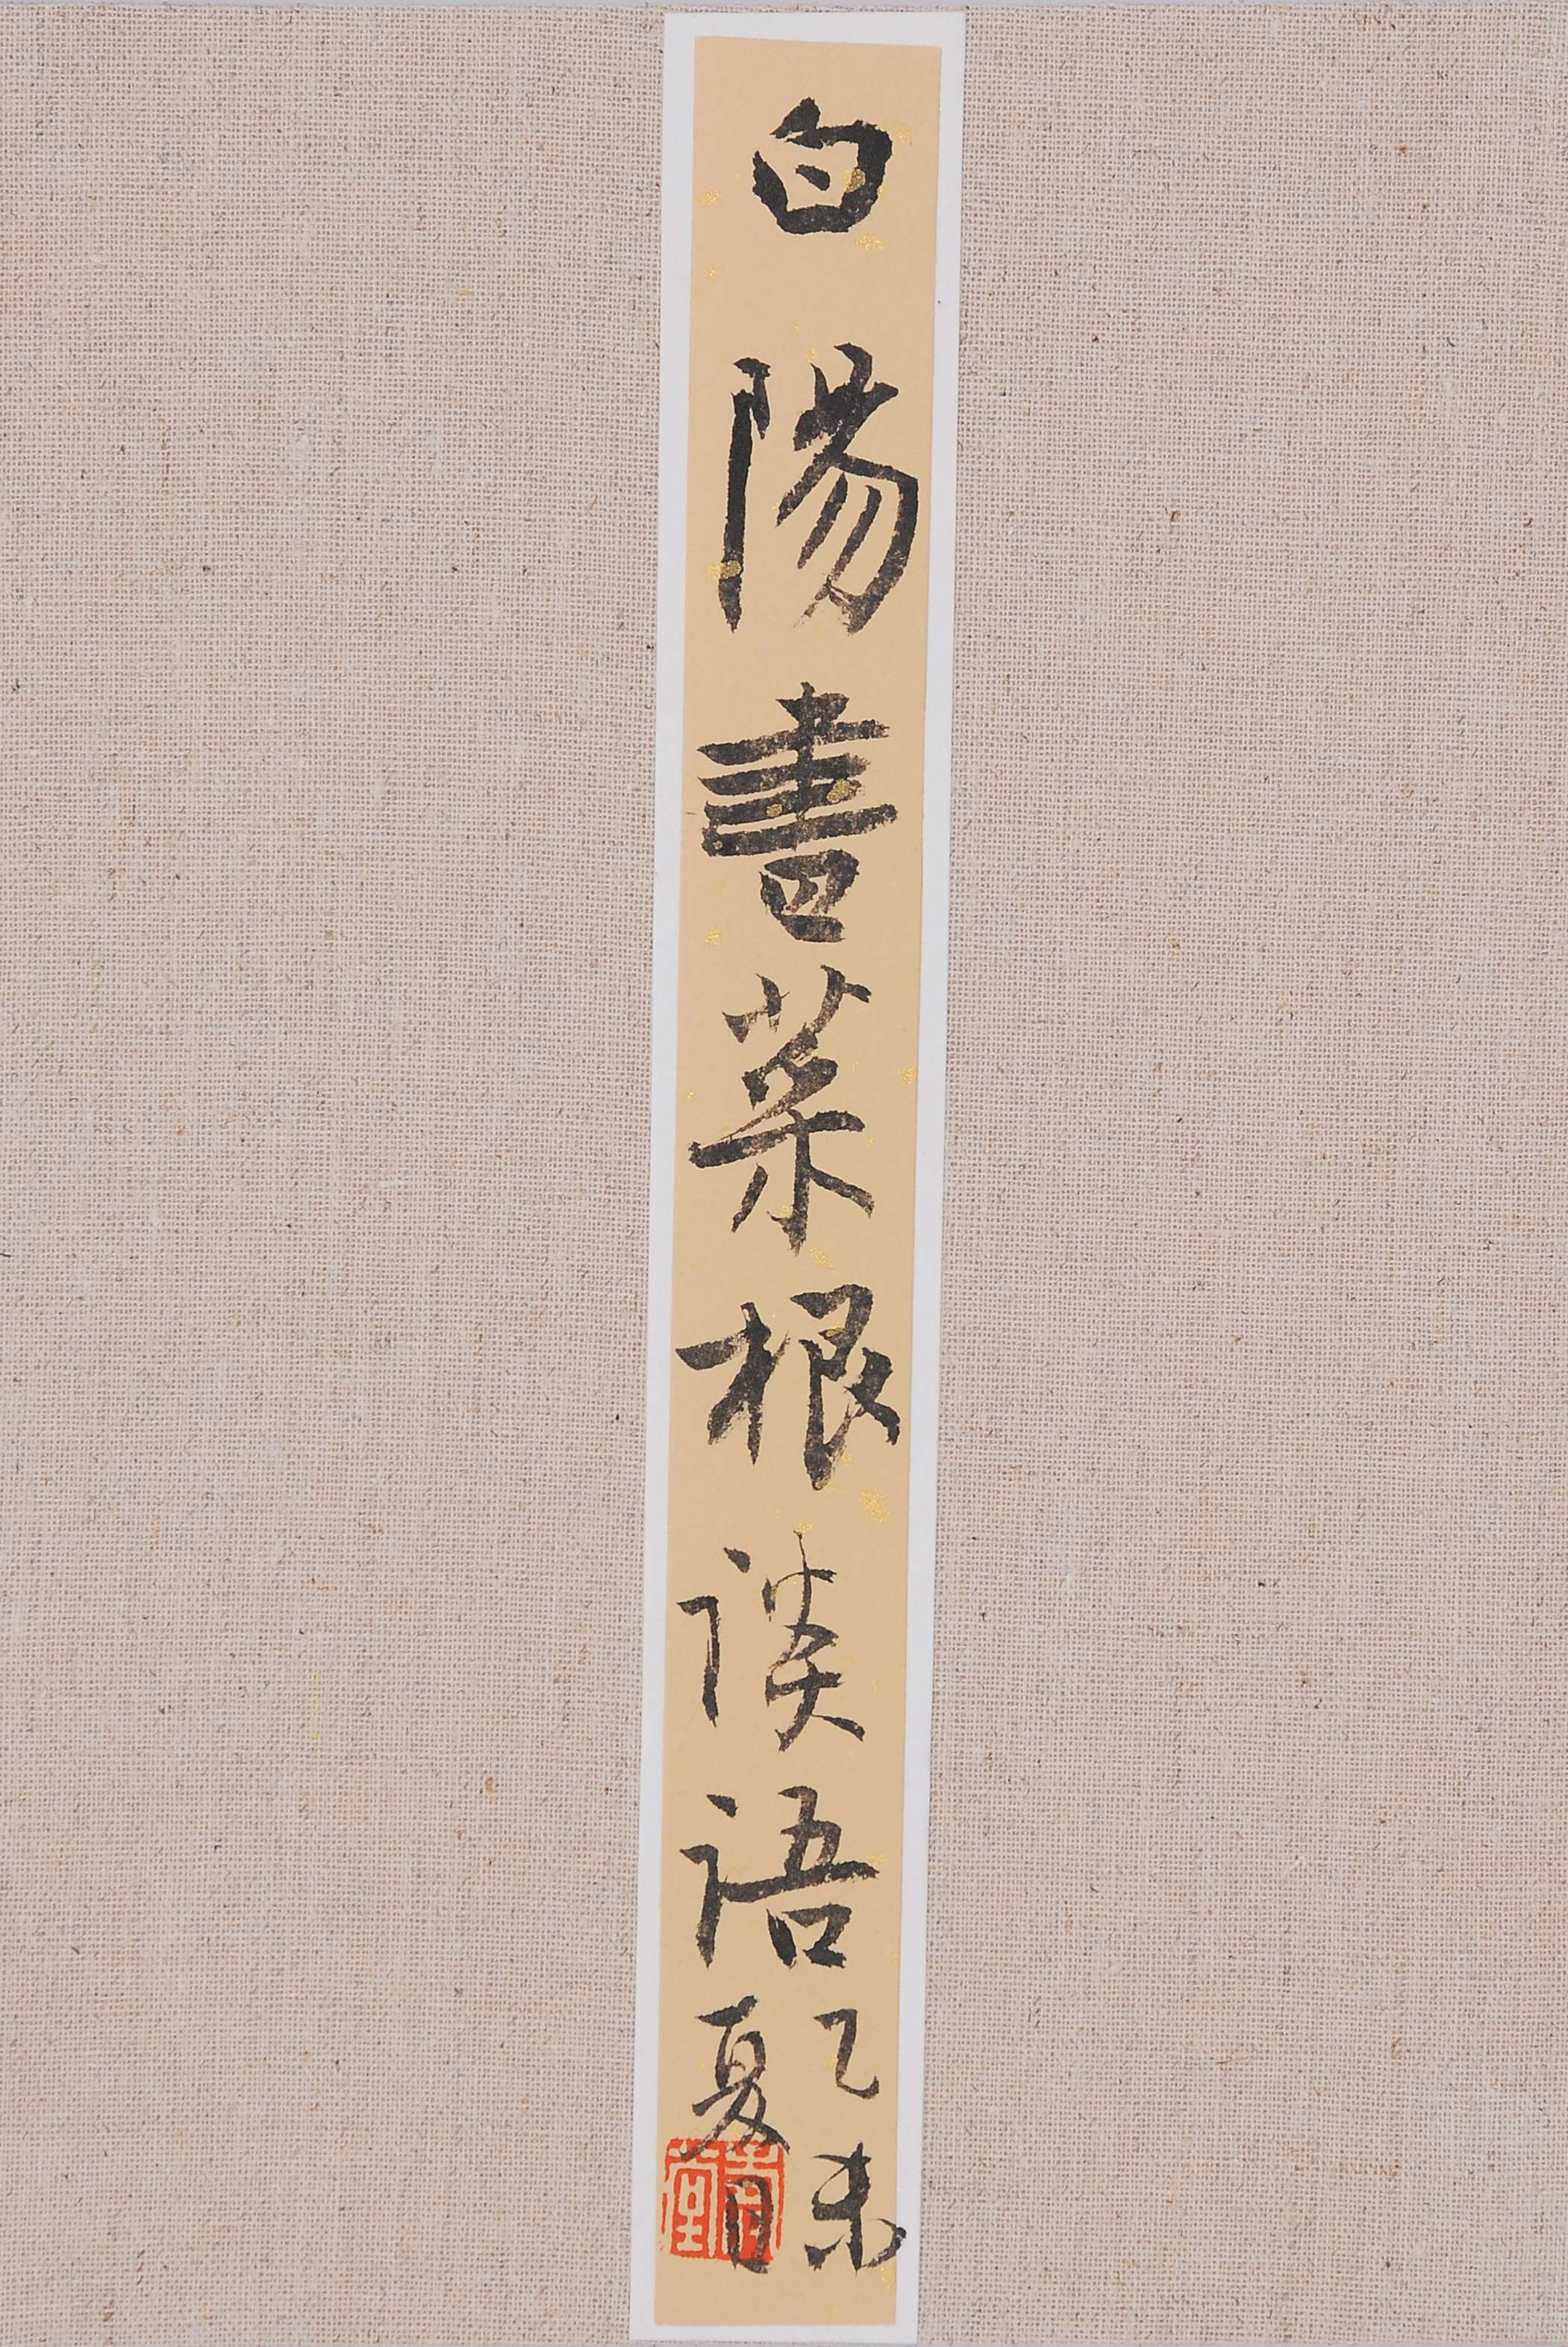 白陽書菜根談語
乙未
夏日